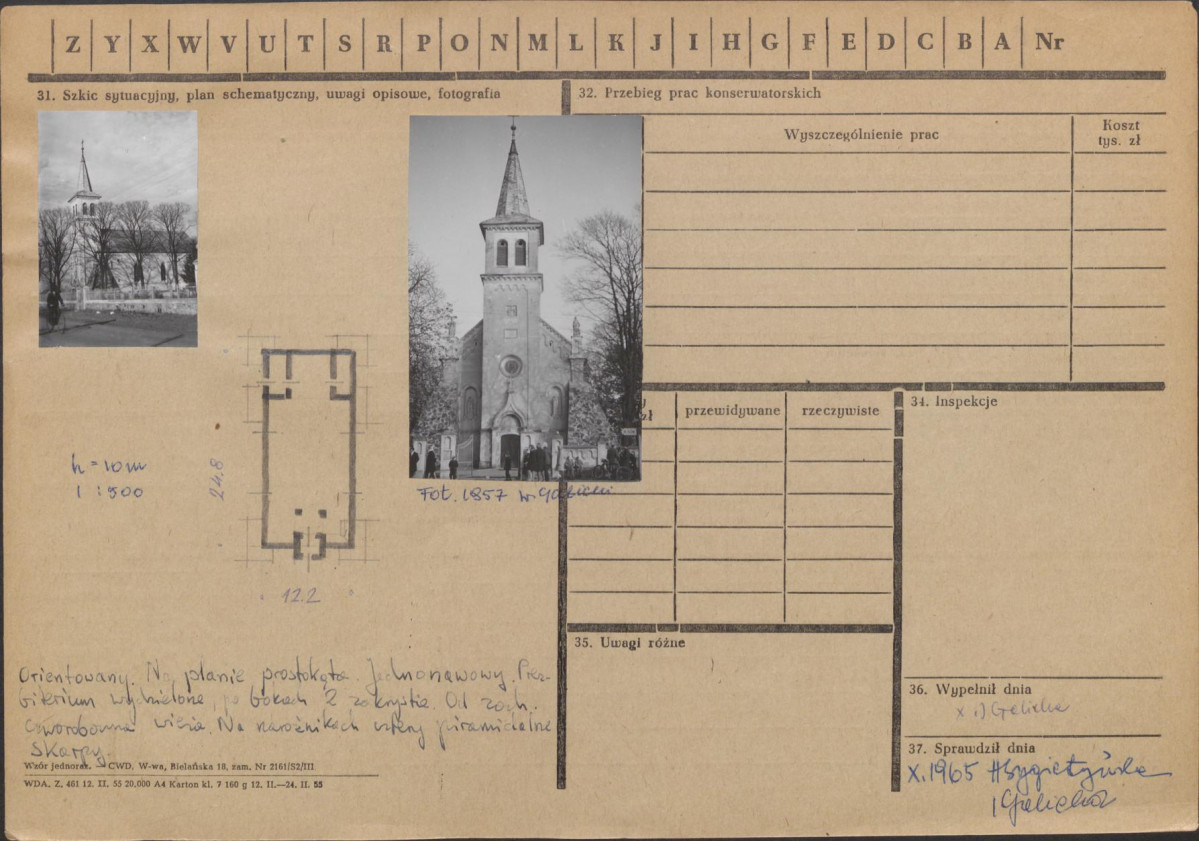 Z Y X W V U T S R P O N M L K J I H G F E D C B A Nr
31. Szkic sytuacyjny, plan schematyczny, uwagi opisowe, fotografia
32. Przebieg prac konserwatorskich
Wyszczególnienie prac
Koszt
tys. zł
zł
przewidywane
rzeczywiste
34. Inspekcje
h = 10 m
1 : 500
24.8
12.2
Fot. 1957 W. Galicki
35. Uwagi różne
Orientowany. Na planie prostokąta. Jednonawowy. Prez-
biterium wydzielone, po bokach 2 zakrystie. Od zach.
czworoboczna wieża. Na narożnikach cztery piramidalne
skarpy.
Wzór jednoraz. CWD. W-wa, Bielańska 18, zam. Nr 2161/S2/III
WDA. Z. 461 12. II. 55 20,000 A4 Karton kl. 7 160 g 12. II.—24. II. 55
36. Wypełnił dnia
X
37. Sprawdził dnia
X.1965